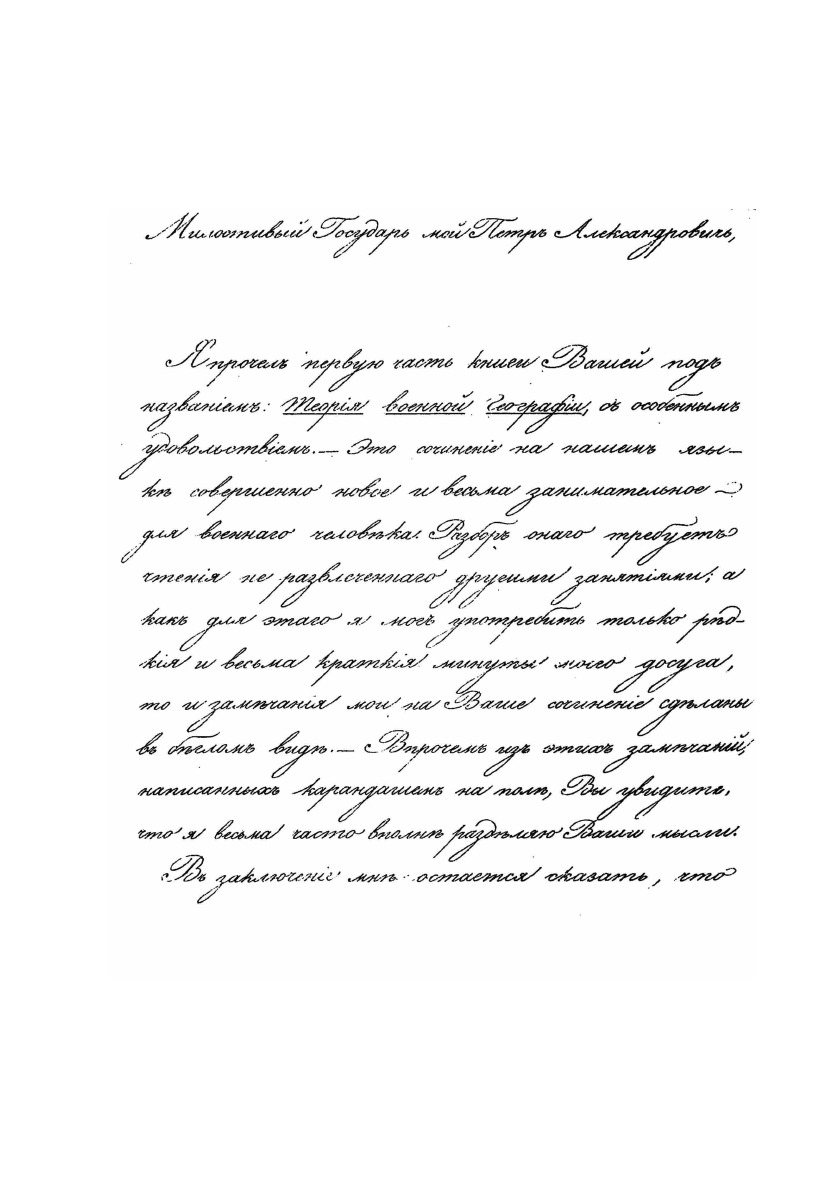 Милостивый Государь мой Петръ Александровичь,
Я прочелъ первую часть книги Вашей подъ
названіемъ: Теорія военной Географіи, съ особеннымъ
удовольствіемъ. — Это сочиненіе на нашемъ язы-
кѣ совершенно новое и весьма занимательное —
для военнаго человѣка. Разборъ онаго требуетъ
чтенія не развлеченнаго другими занятіями; а
какъ для этаго я могъ употребить только рѣд-
кія и весьма краткія минуты моего досуга,
то и замѣчанія мои на Ваше сочиненіе сдѣланы
въ бѣгломъ видѣ. — Впрочемъ изъ этихъ замѣчаній,
написанныхъ карандашемъ на полѣ, Вы увидите,
что я весьма часто вполнѣ раздѣляю Ваши мысли.
Въ заключеніе мнѣ остается сказать, что